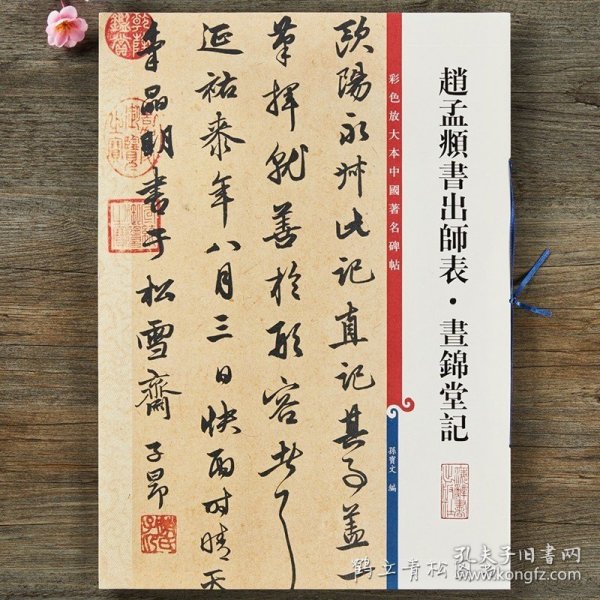 趙孟頫書出師表·晝錦堂記
彩色放大本中國著名碑帖
孫寶文 編
歐陽永叔此記直記其事蓋一
筆揮就善於形容者
延祐桼年八月三日快雨時晴天
氣晶明書于松雪齋 子昂
趙氏子昂
乾隆鑑賞
鹤立青松图
孔夫子旧书网
www.kongfz.com